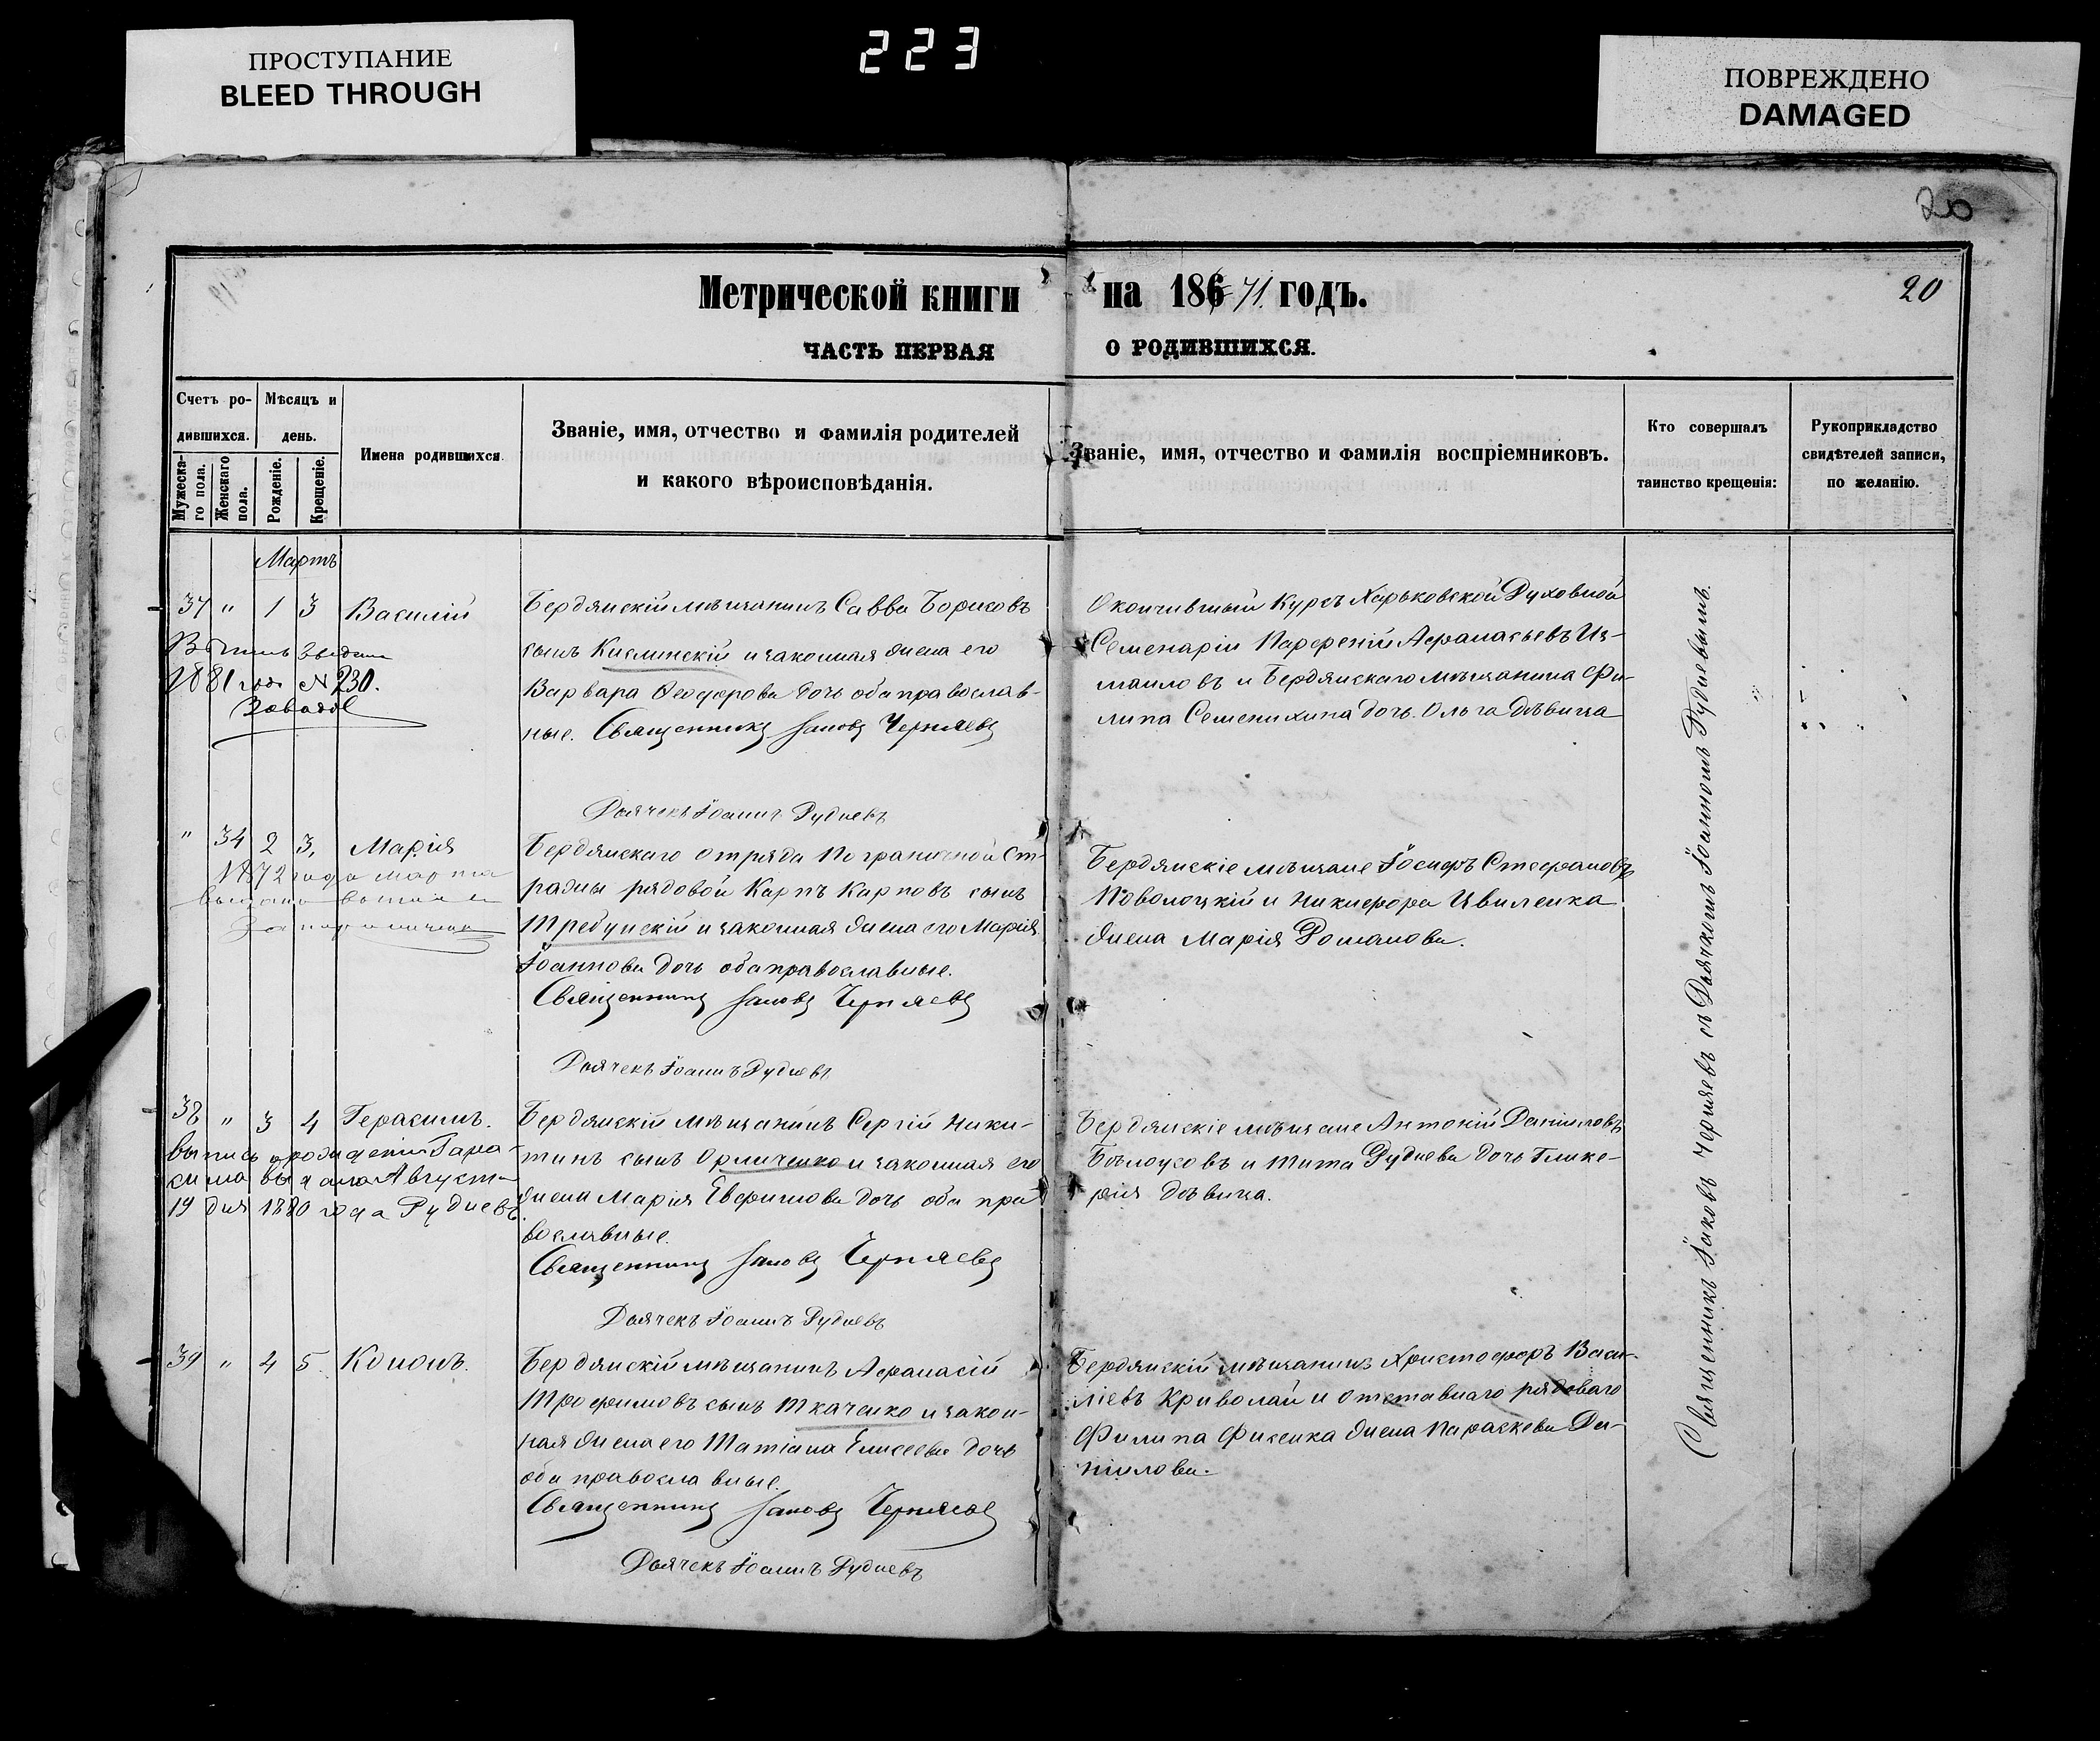 ПРОСТУПАНИЕ
BLEED THROUGH
223
ПОВРЕЖДЕНО
DAMAGED
20
Метрической книги на 18671 годъ.
20
ЧАСТЬ ПЕРВАЯ О РОДИВШИХСЯ.
Счетъ ро-
дившихся.
Мѣсяцъ и
день.
Мужеска-
го пола.
Женскаго
пола.
Рожденіе.
Крещеніе.
Имена родившихся
Званіе, имя, отчество и фамилія родителей
и какого вѣроисповѣданія.
Званіе, имя, отчество и фамилія воспріемниковъ.
Кто совершалъ
таинство крещенія:
Рукоприкладство
свидѣтелей записи,
по желанію.
Мартъ
37 " 1 3 Василій
1881 года № 230.
Бердянскій мѣщанинъ Савва Борисовъ
сынъ Кислинскій и законная жена его
Варвара Ѳеодорова дочь оба православ-
ные. Священникъ Іаковъ Черняевъ
Дьячекъ Іоаннъ Рудневъ
Окончившый Курсъ Харьковской Духовной
Семенаріи Парфеній Афанасьевъ Из-
маиловъ и Бердянскаго мѣщанина Фи-
липа Семенихина дочь Ольга дѣвица
" 34 2 3, Марія
1872 года марта
Бердянскаго отряда Пограничной Ст-
ражи рядовой Карпъ Карповъ сынъ
Требунскій и законная жена его Марія
Іоаннова дочь оба православные.
Священникъ Іаковъ Черняевъ
Дьячекъ Іоаннъ Рудневъ
Бердянскіе мѣщане Іосифъ Стефановъ
Поволоцкій и Никифора Цвиленка
жена Марія Романова.
38 " 3 4 Герасимъ.
выпись о рожденіи Гара-
сима выдана Август-
19 дня 1880 года Рудневъ
Бердянскій мѣщанинъ Сергій Ники-
тинъ сынъ Орличенко и законная его
жена Марія Евфимова дочь оба пра-
вославные.
Священникъ Іаковъ Черняевъ
Дьячекъ Іоаннъ Рудневъ
Бердянскіе мѣщане Антоній Даниловъ
Бѣлоусовъ и Тита Руднева дочь Глике-
рія дѣвица.
39 " 4 5. Кононъ.
Бердянскій мѣщанинъ Афанасій
Трофимовъ сынъ Ткаченко и закон-
ная жена его Татіана Елисеева дочь
оба православные.
Священникъ Іаковъ Черняевъ
Дьячекъ Іоаннъ Рудневъ
Бердянскій мѣщанинъ Христофоръ Васи-
ліевъ Криволай и отставнаго рядоваго
Филипа Фисенка жена Параскева Да-
нилова.
Священникъ Іаковъ Черняевъ съ Дьячкомъ Іоанномъ Рудневымъ.